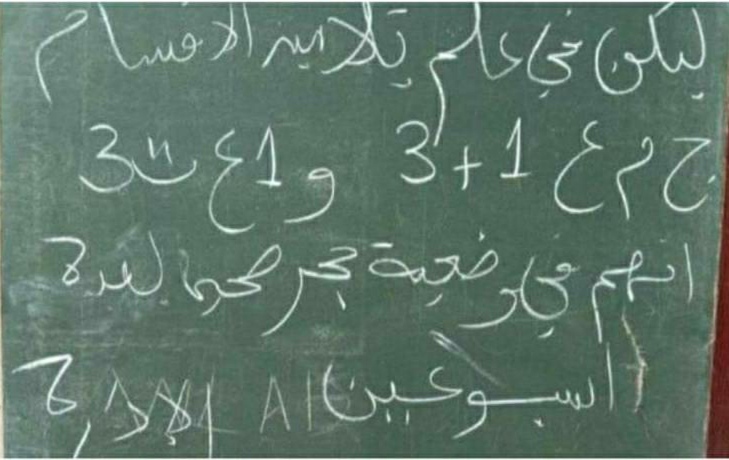 ليكن في علم تلاميذ الاقسام
ج م ع 1 + 3 و 1 ع ت 3
انهم في وضعية حجر صحي لمدة
اسبوعين الإدارة